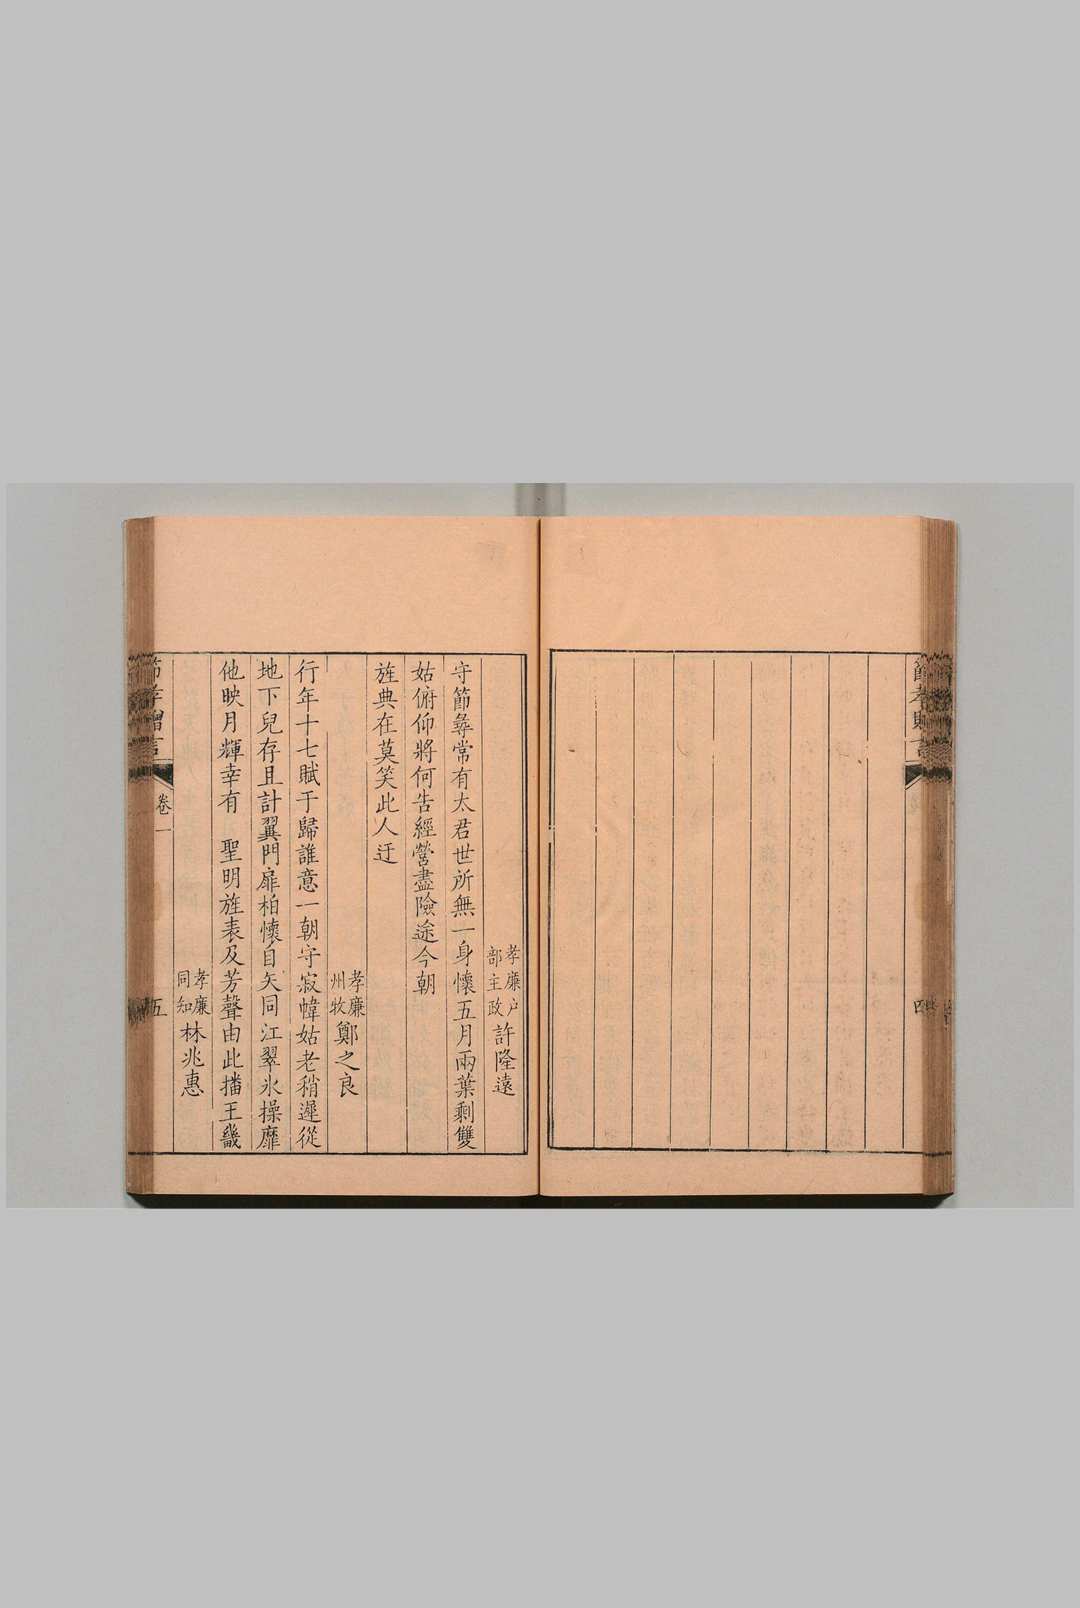 節孝贈言
四
孝廉户部主政許隆遠
守節彝常有太君世所無一身懷五月兩葉剩雙
姑俯仰將何告經營盡險途今朝
旌典在莫笑此人迂
孝廉州牧鄭之良
行年十七賦于歸誰意一朝守寂幃姑老稍遲從
地下兒存且計翼門扉柏懷自矢同江翠氷操靡
他映月輝幸有　聖明旌表及芳聲由此播王畿
孝廉同知林兆惠
節孝贈言
卷一
五